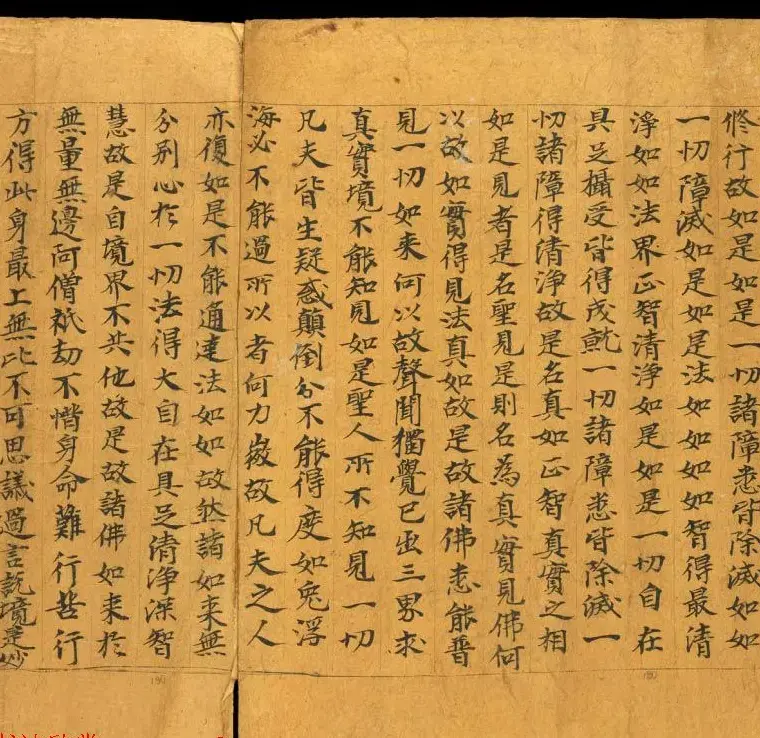 修行故如是如是一切諸障悉皆除滅如如
一切障滅如是如是法如如如如智得最清
淨如如法界正智清淨如是如是一切自在
具足攝受皆得成就一切諸障悉皆除滅一
切諸障得清淨故是名真如正智真實之相
如是見者是名聖見是則名為真實見佛何
以故如實得見法真如故是故諸佛悉能普
見一切如来何以故聲聞獨覺已出三界求
真實境不能知見如是聖人所不知見一切
凡夫皆生疑惑顛倒分不能得度如兔浮
海必不能過所以者何力微故凡夫之人
亦復如是不能通達法如如故然諸如来無
分别心於一切法得大自在具足清淨深智
慧故是自境界不共他故是故諸佛如来於
無量無邊阿僧祇劫不惜身命難行苦行
方得此身最上無比不可思議過言說境是妙